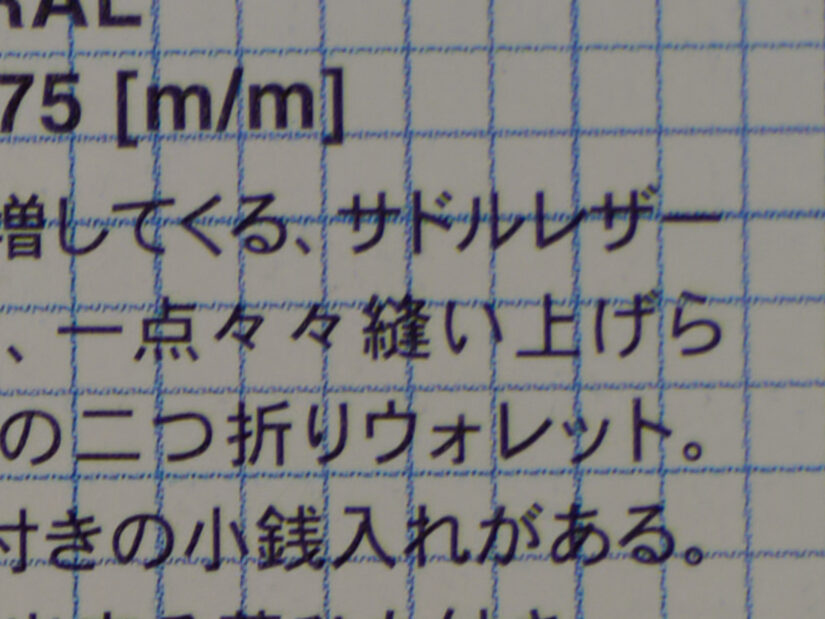 RAL
75 [m/m]
増してくる、サドルレザー
、一点々々縫い上げら
の二つ折りウォレット。
付きの小銭入れがある。